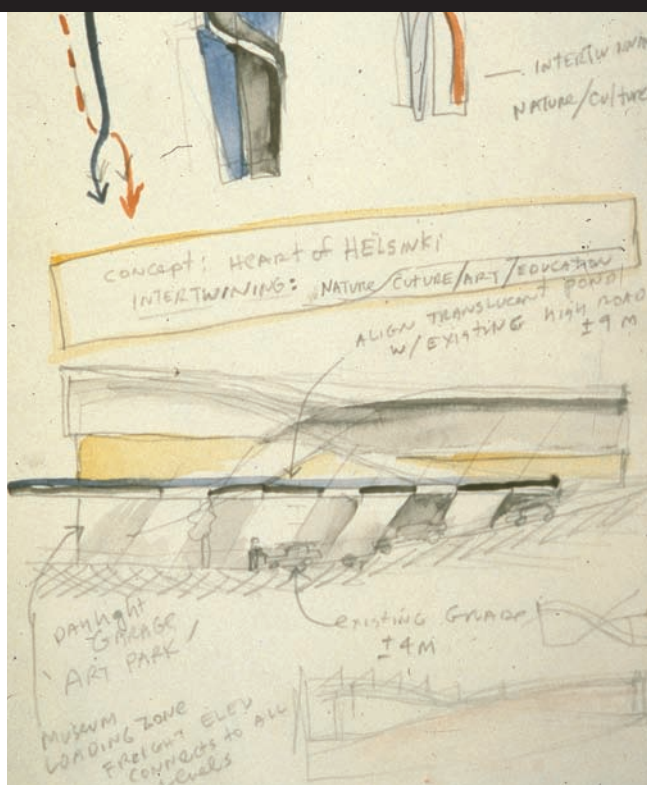 INTERTWINING
NATURE/CULTURE
CONCEPT: HEART OF HELSINKI
INTERTWINING: NATURE/CUTURE/ART/EDUCATION
ALIGN TRANSLUCENT POND
W/EXISTING HIGH ROAD
±9 M
DAYLIGHT
GARAGE
ART PARK /
EXISTING GRADE
±4 M
MUSEUM
LOADING ZONE
FREIGHT ELEV
CONNECTS TO ALL
LEVELS